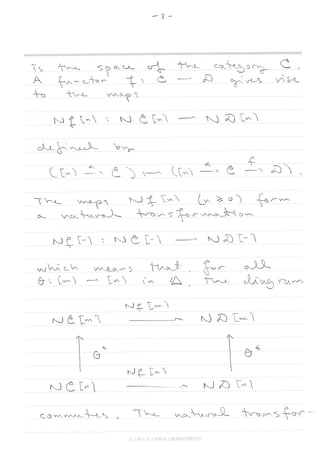 -8-
is the space of the category C.
A functor f: C — D gives rise
to the maps
Nf[n] : NC[n] — ND[n]
defined by
([n] —α→ C) ⟼ ([n] —α→ C —f→ D).
The maps Nf[n] (n ≥ 0) form
a natural transformation
Nf[-] : NC[-] — ND[-]
which means that, for all
θ: [m] — [n] in Δ, the diagram
Nf[m]
NC[m] → ND[m]
↑ θ* ↑ θ*
Nf[n]
NC[n] → ND[n]
commutes. The natural transfor-